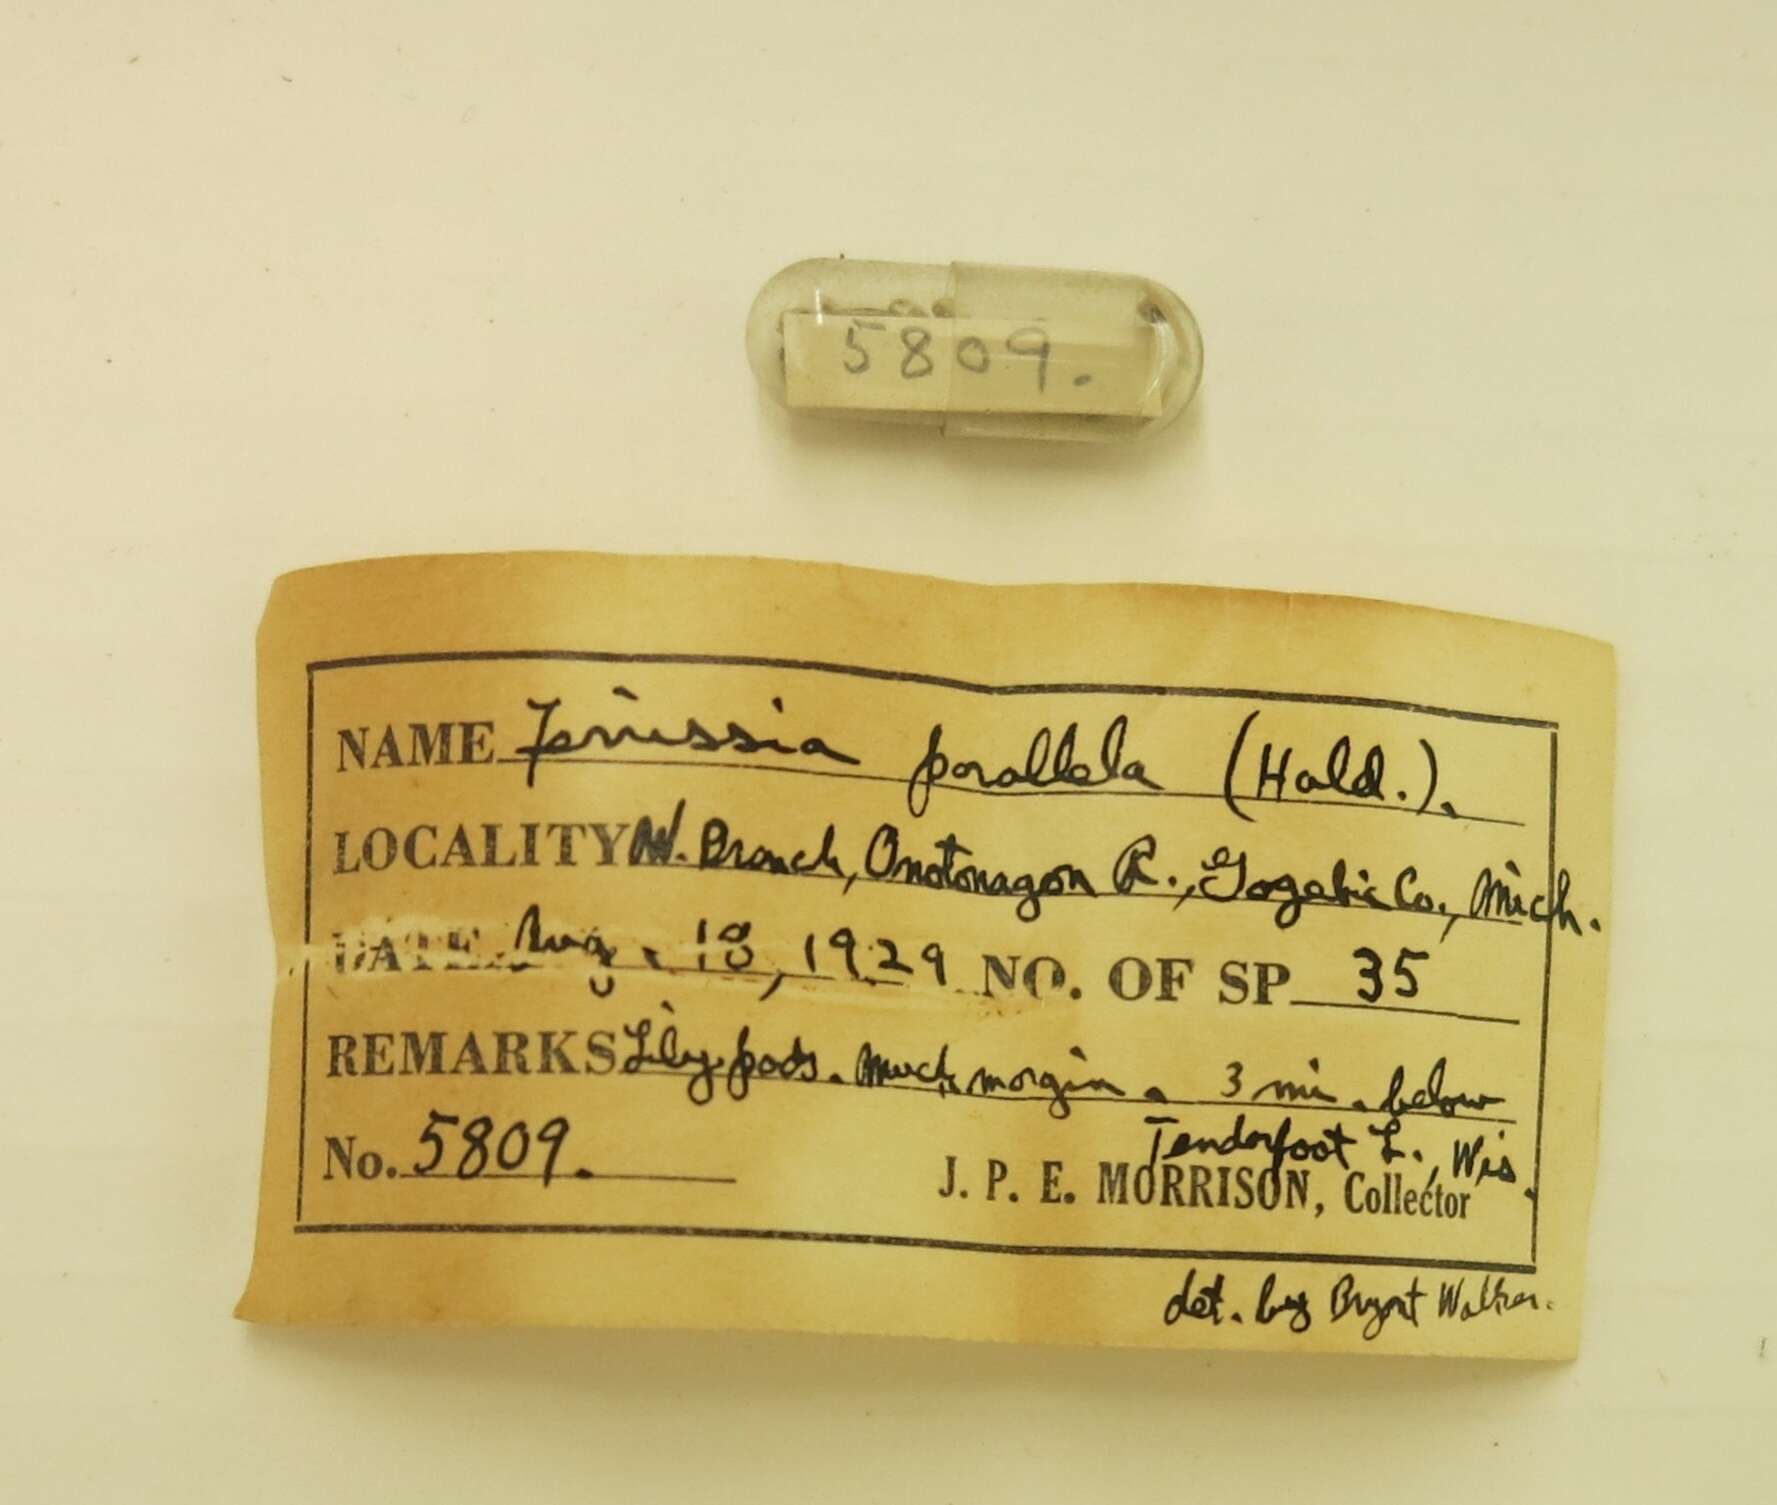 5809.
NAME Ferrissia parallela (Hald.).
LOCALITY W. Branch, Onotonagon R., Gogebic Co., Mich.
DATE Aug. 18, 1929 NO. OF SP 35
REMARKS Lily pads. Muck margin. 3 mi. below
Tenderfoot L., Wis.
No. 5809.
J. P. E. MORRISON, Collector
det. by Bryant Walker.